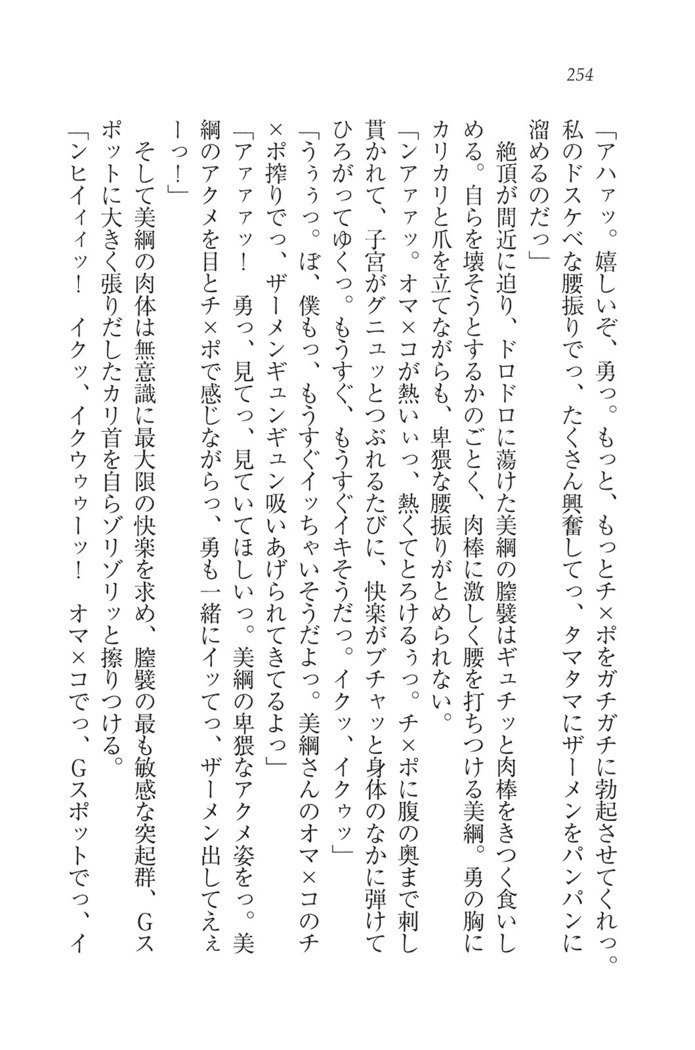 254
「アハァッ。嬉しいぞ、勇っ。もっと、もっとチ×ポをガチガチに勃起させてくれっ。
私のドスケベな腰振りでっ、たくさん興奮してっ、タマタマにザーメンをパンパンに
溜めるのだっ」
　絶頂が間近に迫り、ドロドロに蕩けた美綱の膣襞はギュチッと肉棒をきつく食いし
める。自らを壊そうとするかのごとく、肉棒に激しく腰を打ちつける美綱。勇の胸に
カリカリと爪を立てながらも、卑猥な腰振りがとめられない。
「ンアァァッ。オマ×コが熱いぃっ、熱くてとろけるぅっ。チ×ポに腹の奥まで刺し
貫かれて、子宮がグニュッとつぶれるたびに、快楽がブチャッと身体のなかに弾けて
ひろがってゆくっ。もうすぐ、もうすぐイキそうだっ。イクッ、イクゥッ」
「うぅぅっ。ぼ、僕もっ、もうすぐイッちゃいそうだよっ。美綱さんのオマ×コのチ
×ポ搾りでっ、ザーメンギュンギュン吸いあげられてきてるよっ」
「アァァァッ！　勇っ、見てっ、見ていてほしいっ。美綱の卑猥なアクメ姿をっ。美
綱のアクメを目とチ×ポで感じながらっ、勇も一緒にイッてっ、ザーメン出してえぇ
ーっ！」
　そして美綱の肉体は無意識に最大限の快楽を求め、膣襞の最も敏感な突起群、Gス
ポットに大きく張りだしたカリ首を自らゾリゾリッと擦りつける。
「ンヒイィィッ！　イクッ、イクウゥゥーッ！　オマ×コでっ、Gスポットでっ、イ